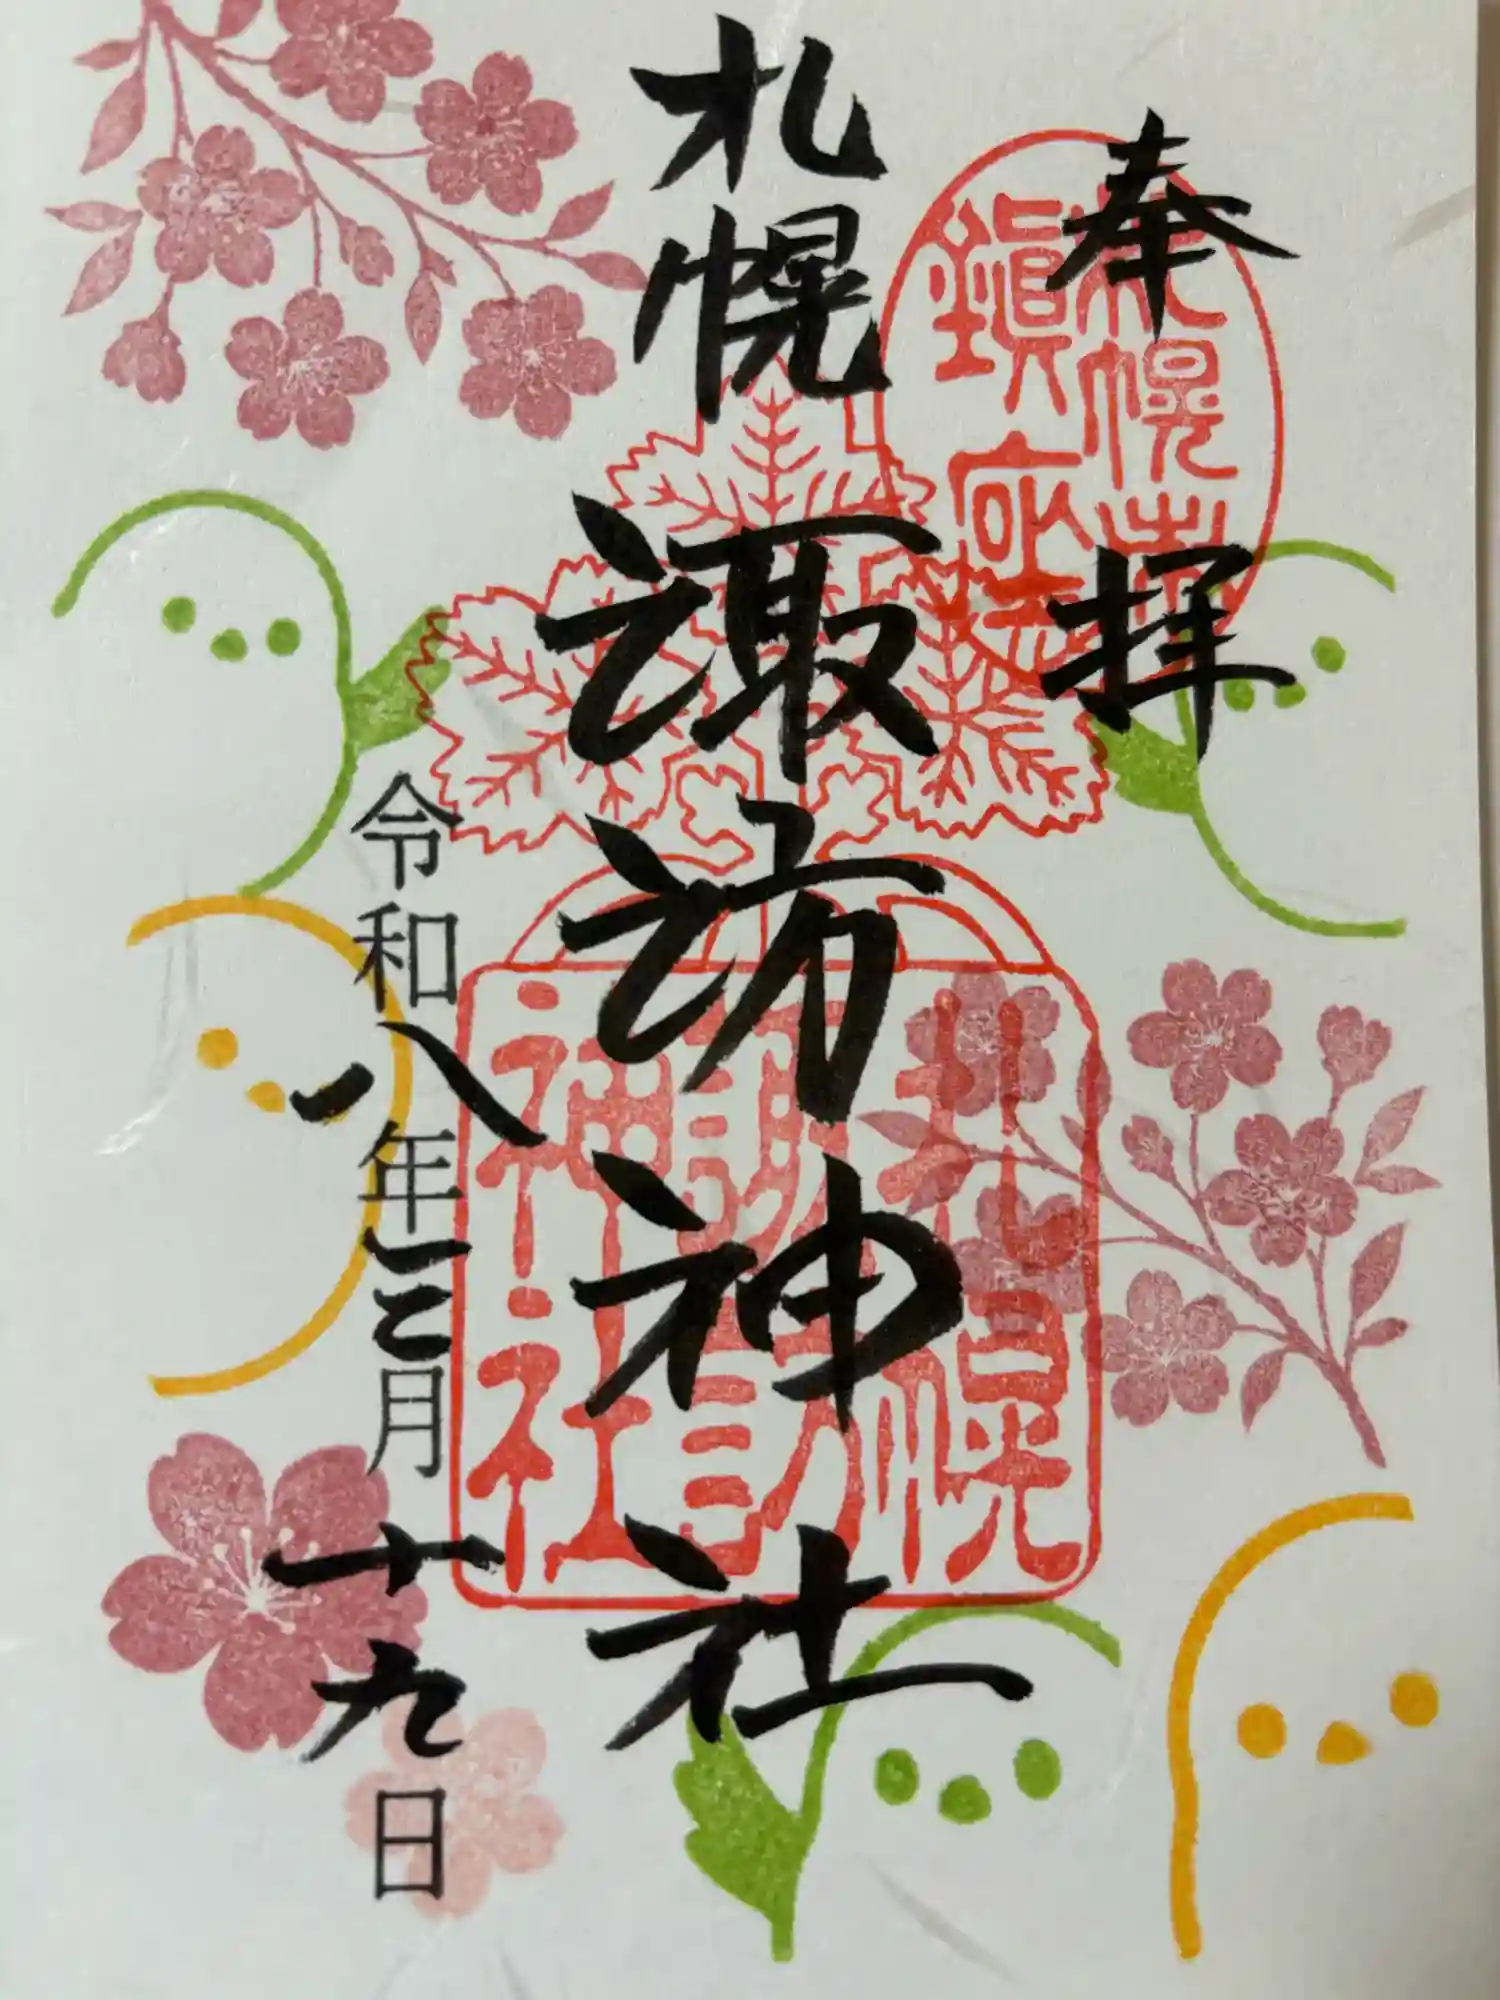 奉拝
札幌
鎮座
札幌諏訪神社
札幌
諏訪
神社
令和八年三月十九日